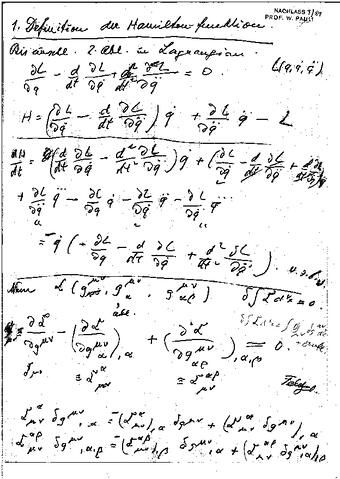 NACHLASS
PROF. W. PAULI
1. Definition der Hamiltonfunktion
Bis einschl. 2. Abl. in Lagrangian.
∂L/∂q − d/dt ∂L/∂q̇ + d²/dt² ∂L/∂q̈ = 0. L(q, q̇, q̈)
H = (∂L/∂q̇ − d/dt ∂L/∂q̈) q̇ + ∂L/∂q̈ q̈ − L
dH/dt = (d/dt ∂L/∂q̇ − d²/dt² ∂L/∂q̈) q̇ + (∂L/∂q̇ − d/dt ∂L/∂q̈ + d/dt
+ ∂L/∂q̈ q⃛ − ∂L/∂q q̇ − ∂L/∂q̇ q̈ − ∂L/∂q̈ q⃛
= − q̇ (+ ∂L/∂q − d/dt ∂L/∂q̇ + d²/dt² ∂L/∂q̈).
Nun L (g^μν, g^μν_,α, g^μν_αβ) δ∫L d⁴x = 0.
∂L/∂g^μν − (∂L/∂g^μν_,α)_,α + (∂L/∂g^μν_,αβ)_,α,β = 0.
≅ L^α_μν ≅ L^αβ_μν
L^α_μν δg^μν_,α = −(L^α_μν)_,α δg^μν + (L^α_μν δg^μν)_,α
L^αβ_μν δg^μν_,α,β = −(L^αβ_μν)_,β δg^μν_,α + (L^αβ_μν δg^μν_,α)_,β